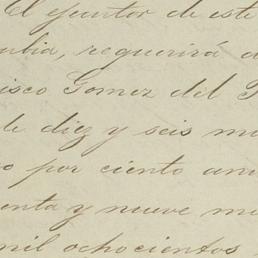 El ejecutor de este
umbia, requerirá a
isco Gomez del P
de diez y seis mi
o por ciento anu
enta y nueve me
mil ochocientos